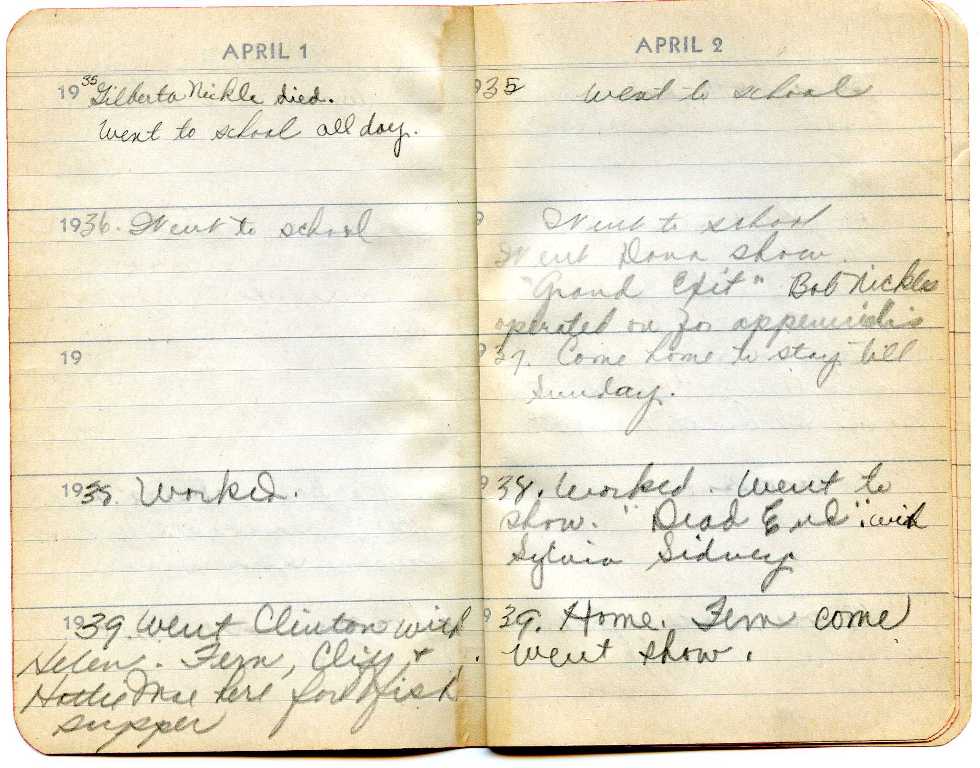 APRIL 1
1935 Gilberta Nickle died.
Went to school all day.
1936. Went to school
19
1938. Worked.
1939. Went Clinton with
Helen. Fern, Cliff, &
Hattie Mae here for fish
supper
APRIL 2
935 Went to school
9 Went to school
Went Dana show.
"Grand Exit" Bob Nickles
operated on for
937. Come home to stay till
Sunday.
938. Worked. Went to
show. "Dead End" with
Sylvia Sidney
939. Home. Fern come
went show.